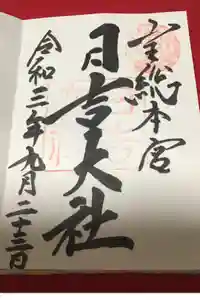 全総本宮
日吉大社
令和三年九月二十三日